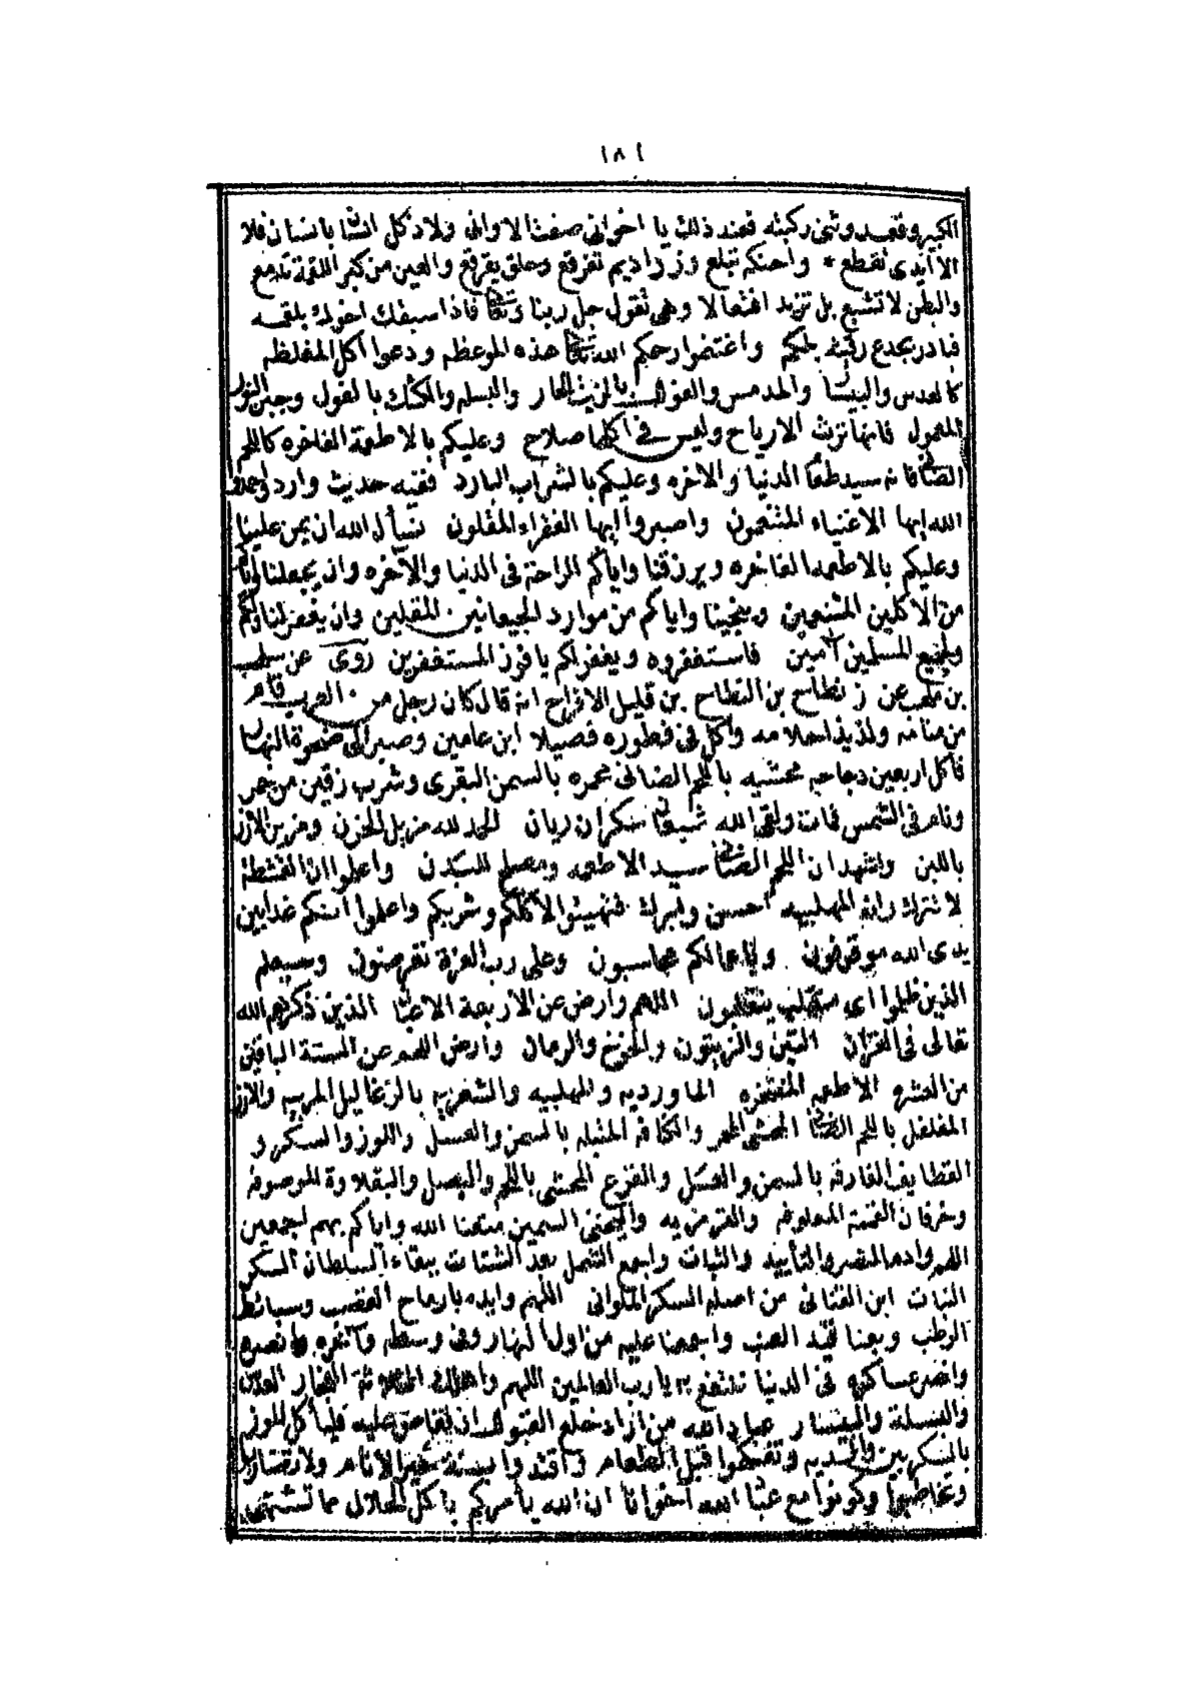 ١٨١
الكبير وقعد وثنى ركبته فعند ذلك يا اخوانى صفت الاوانى ولاد كل انسان بانسان فلا
الا ايدى تقطع * واحنكه تبلع وزراديم تفرقع وحلق يقرقع والعين من كبر اللقمة تدمع
والبطن لا تشبع بل تزيد افتعالا وهى تقول جل ربنا وتعالى فاذا سبقك اخوك بلقمه
فبادر بجدع ركبته بلكم واغتنموا رحمكم الله تعالى هذه الموعظه ودعوا اكل المغلظه
كالعدس والبيسار والمدمس والفول بالزيت الحار والبسله والكشك بالفول وجبن
المعمول فانها تورث الارياح وليس فى اكلها صلاح وعليكم بالاطعمة الفاخره كاللحم
الضانى فانه سيد طعام الدنيا والاخره وعليكم بالشراب البارد ففيه حديث وارد
الله ايها الاغنياء المتنعمون واصبروا ايها الفقراء المقلون نسأل الله ان يمن علينا
وعليكم بالاطعمه الفاخره ويرزقنا واياكم الراحة فى الدنيا والآخره وان يجعلنا واياكم
من الاكلين المتنعمين وينجينا واياكم من موارد الجيعانين المقلين وان يغفر لنا ولكم
ولجميع المسلمين آمين فاستغفروه ويغفر لكم يا فوز المستغفرين روى عن
بن عن نطاح بن النطاح بن قليل الافراح انه قال كان رجل من العرب قام
من منامه ولذيذ احلامه واكل فى فطوره فصيلا ابن عامين وصبر الى ضحوة النهار
فأكل اربعين دجاجه محشيه باللحم الضانى محمره بالسمن البقرى وشرب زقين من خمر
ونام فى الشمس فمات ولقى الله شبعان سكران ريان الحمد لله مزيل الحزن ومزين الارز
باللبن واشهد ان اللحم الضانى سيد الاطعمه ومصلح للبدن واعلموا ان القشطة
لا تترك وان المهلبيه احسن وابرك فتهيئوا لاكلكم وشربكم واعلموا انكم غدا بين
يدى الله موقوفون وباعمالكم محاسبون وعلى رب العزة تعرضون وسيعلم
الذين ظلموا اى منقلب ينقلبون اللهم وارض عن الاربعة الاعيان الذين ذكرهم الله
تعالى فى القرآن التين والزيتون والخوخ والرمان وارض اللهم عن الستة الباقين
من العشره الاطعمه المفتخره الماورديه والمهلبيه والشعريه بالزغاليل المربيه والارز
المفلفل باللحم الضانى المحشى المحمر والكنافه المتبله بالسمن والعسل واللوز والسكر و
القطايف الغارقه بالسمن والعسل والقرع المحشى باللحم والبصل والبقلاوة الموصوفه
وخرفان الغنمة المعلوفه والقرمزيه واليخنى السمين متعنا الله واياكم بهم اجمعين
اللهم وادم النصر والتأييد والثبات واجمع الشمل بعد الشتات ببقاء السلطان السكر
النبات ابن القنانى من اصله السكر الملوانى اللهم وايده بارماح القصب وسبائط
الرطب وبعنا قيد العنب واجمعنا عليه من اول النهار وفى وسطه وآخره وانصره
وانصر عساكره فى الدنيا ننتفع به يا رب العالمين اللهم واهلك الثلاثة الفجار العدس
والبسلة والبيسار عباد الله من اراد خلع القبول ان تخلع عليه فليأكل الموز
بالسكر بين وتفكهوا قبل الطعام واقتدوا بسنة خير الانام ولا تقاتلوا
وتخاصموا وكونوا مع عباد الله اخوانا ان الله يأمركم باكل الحلال مما تشتهى